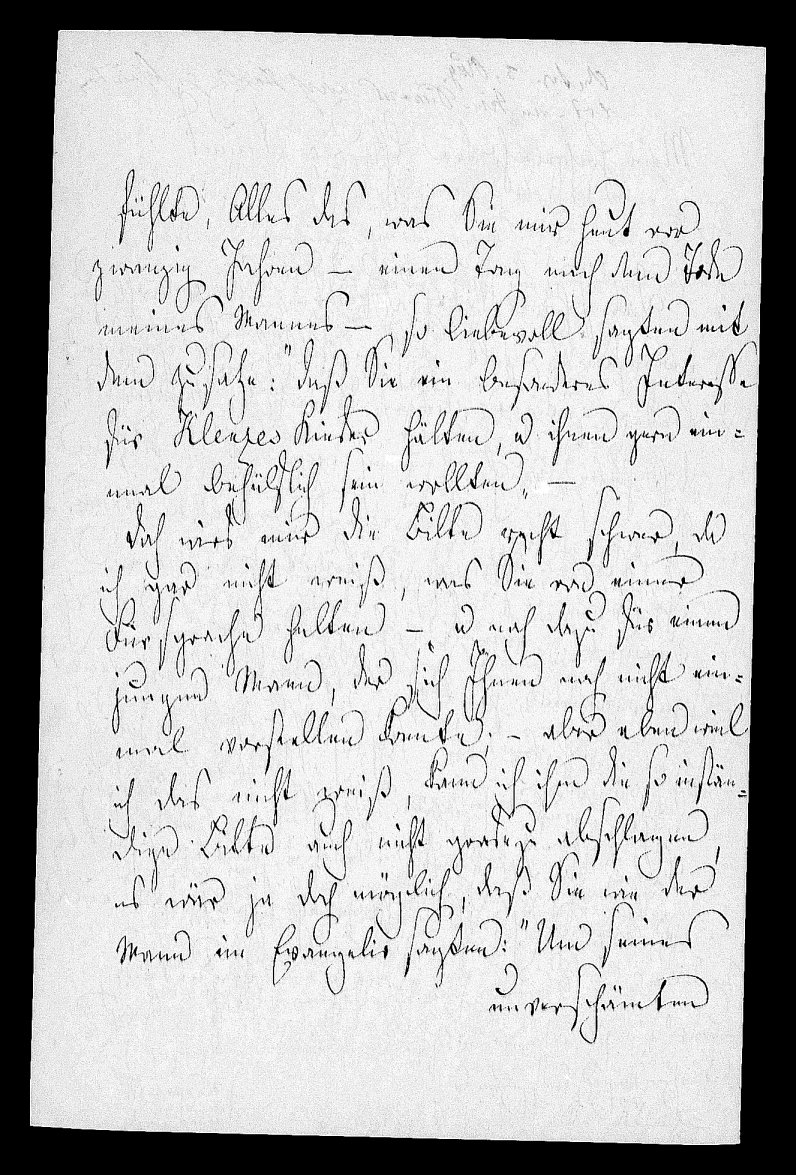 fühlte, Alles das, was Sie mir heut vor
zwanzig Jahren — einen Tag nach dem Tode
meines Mannes — so liebevoll sagten mit
dem Zusatze: "daß Sie ein besonderes Interesse
für Klenzes Kinder hätten, u ihnen gern ein=
mal behülflich sein wollten." —
Doch wird mir die Bitte recht schwer, da
ich gar nicht weiß, was Sie von einer
Fürsprache halten — u noch dazu für einen
jungen Mann, der sich Ihnen noch nicht ein=
mal vorstellen konnte; — aber eben weil
ich das nicht weiß, kann ich ihm die so instän=
dige Bitte auch nicht geradezu abschlagen,
es wär ja doch möglich, daß Sie wie der
Mann im Evangelio sagten: "Um seines
unverschämten